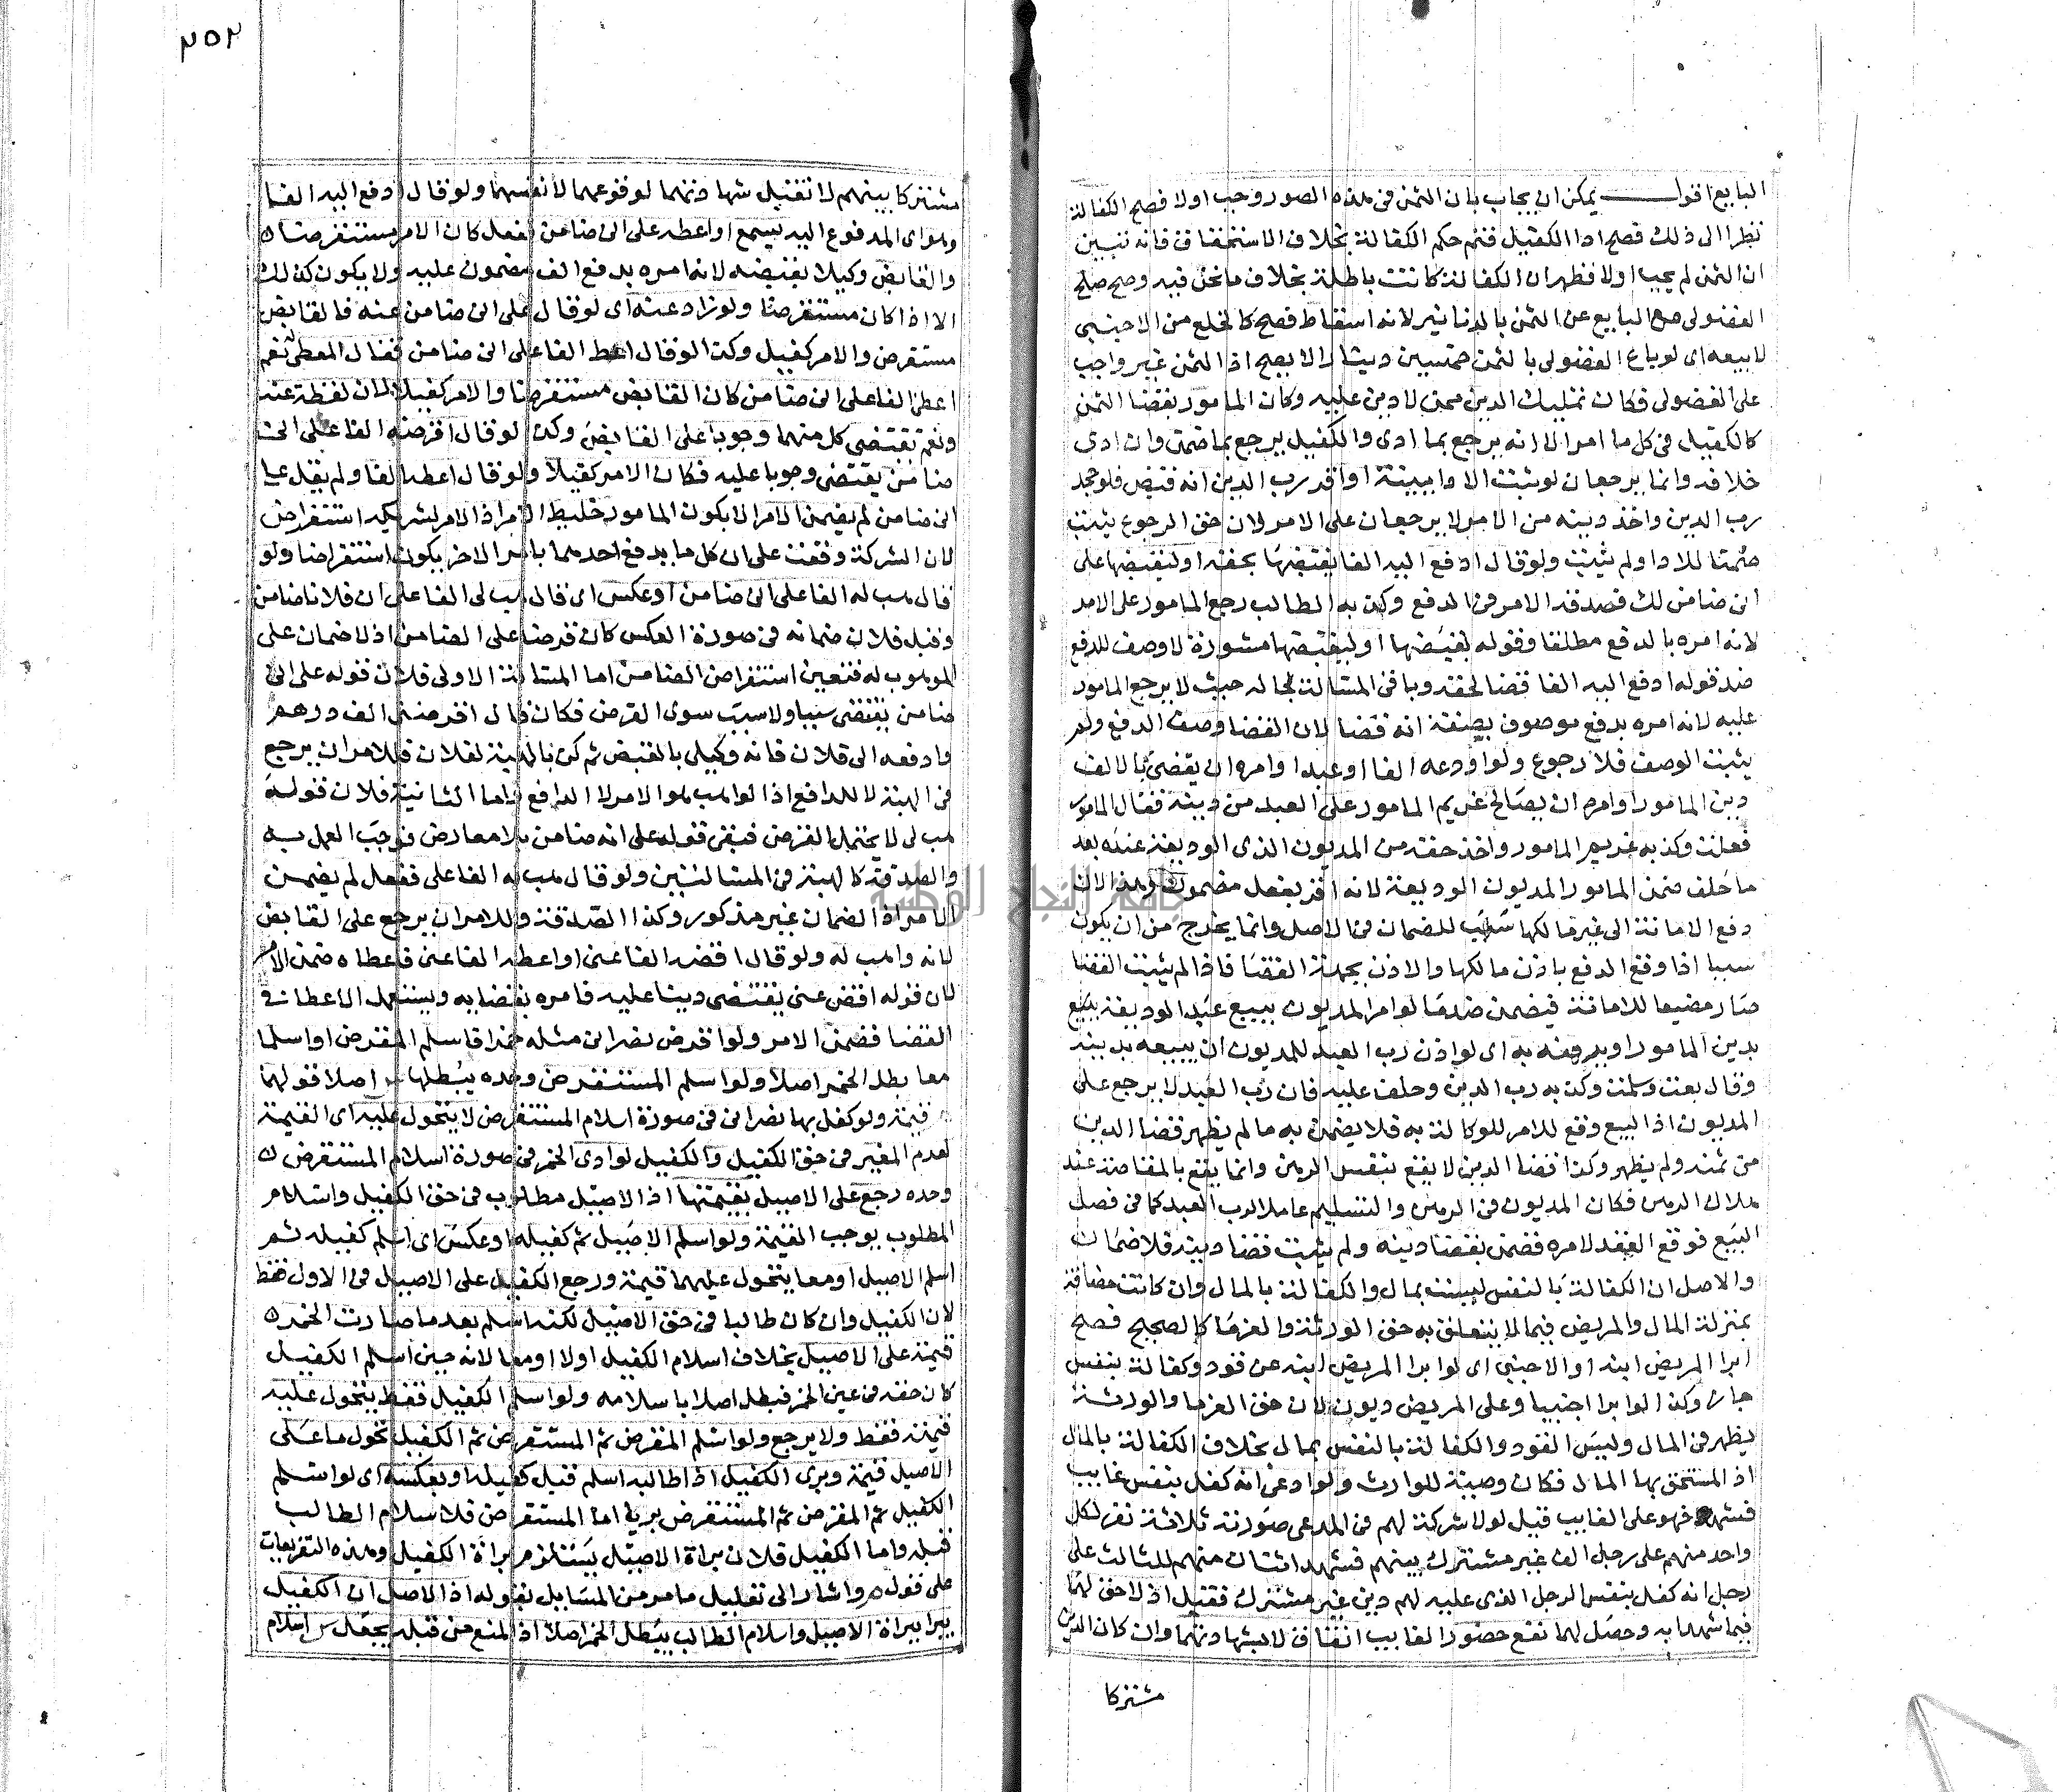 البايع اقول يمكن ان يجاب بان الثمن فى هذه الصور وجب اولا فصح الكفالة
نظرا الى ذلك فصح ادا الكفيل فتم حكم الكفالة بخلاف الاستحقاق فانه تبين
ان الثمن لم يجب اولا فظهر ان الكفالة كانت باطلة بخلاف ما نحن فيه وصح صلح
الفضولى مع البايع عن الثمن بالدنانير لانه اسقاط فصح كالخلع من الاجنبى
لا بيعه اى لو باع الفضولى بالثمن خمسين دينارا لا يصح اذ الثمن غير واجب
على الفضولى فكان تمليك الدين ممن لا دين عليه وكان المامور بقضا الثمن
كالكفيل فى كل ما امر الا انه يرجع بما ادى والكفيل يرجع بما ضمن وان ادى
خلافه وانما يرجعان لو ثبت الادا ببينة او اقر رب الدين انه قبض فلو جحد
رب الدين واخذ دينه من الامر لا يرجعان على الامر لان حق الرجوع يثبت
ضمنا للادا ولم يثبت ولو قال ادفع اليه الفا يقبضها بحقه او ليقبضها على
انى ضامن لك فصدقه الامر فى الدفع وكذبه الطالب رجع المامور على الامر
لانه امره بالدفع مطلقا وقوله يقبضها او ليقبضها مشورة لا وصف للدفع
ضد قوله ادفع اليه الفا قضا لحقه وباقى المسالة بحاله حيث لا يرجع المامور
عليه لانه امره بدفع موصوف بصفة انه قضا لان القضا وصف الدفع ولم
يثبت الوصف فلا رجوع ولو اودعه الفا او عبدا وامره ان يقضى بالالف
دين المامور او امره ان يصالح غريم المامور على العبد من دينه فقال المامور
فعلت وكذبه غريم المامور واخذ حقه من المديون الذى الوديعة عنده بعد
ما حلف ضمن المامور المديون الوديعة لانه اقر بفعل مضمون وهذا لان
دفع الامانة الى غير مالكها سبب للضمان فى الاصل وانما يخرج من ان يكون
سببا اذا وقع الدفع باذن مالكها والاذن بجهة القضا فاذا لم يثبت القضا
صار مضيعا للامانة فيضمن ضد ما لو امر المديون ببيع عبد الوديعة ببيع
بدين المامور او برهنه به اى لو اذن رب العبد للمديون ان يبيعه بدينه
وقال بعت وسلمت وكذبه رب الدين وحلف عليه فان رب العبد لا يرجع على
المديون اذ البيع وقع للامر للوكالة به فلا يضمن به ما لم يظهر قضا الدين
من ثمنه ولم يظهر وكذا قضا الدين لا يقع بنفس الرهن وانما يقع بالمقاصة عند
هلاك الرهن فكان المديون فى الرهن والتسليم عاملا لرب العبد كما فى فصل
البيع فوقع العقد لامره فضمن بقضا دينه ولم يثبت قضا دينه فلا ضمان
والاصل ان الكفالة بالنفس ليست بمال والكفالة بالمال وان كانت مضافة
بمنزلة المال والمريض فيما لا يتعلق به حق الورثة والغرما كالصحيح فصح
ابرا المريض ابنه او الاجنبى اى لو ابرا المريض ابنه عن قود وكفالة بنفس
جاز وكذا لو ابرا اجنبيا وعلى المريض ديون لان حق الغرما والورثة
يظهر فى المال وليس القود والكفالة بالنفس بمال بخلاف الكفالة بالمال
اذ المستحق بها المال فكان وصية للوارث ولو ادعى انه كفل بنفس غايب
فشهد خهو على الغايب قبل لو لا شركة لهم فى المدعى صورته ثلاثة نفر لكل
واحد منهم على رجل الف غير مشترك بينهم فشهد اثنان منهم للثالث على
رجل انه كفل بنفس الرجل الذى عليه لهم دين غير مشترك فقبل اذ لا حق لهما
فيما شهدا به وحصل لهما نفع حضور الغايب اتفاقى لا بشهادتهما وان كان الدين
مشتركا
٢٥٢
مشتركا بينهم لا تقبل شهادتهما لوقوعهما لانفسهما ولو قال ادفع اليه الفا
وهو اى المدفوع اليه يسمع او اعطه على انى ضامن ففعل كان الامر مستقرضا
والقابض وكيلا بقبضه لانه امره بدفع الف مضمون عليه ولا يكون كذلك
الا اذا كان مستقرضا ولو زاد عنه اى لو قال على انى ضامن عنه فالقابض
مستقرض والامر كفيل وكذا لو قال اعط الفا على انى ضامن فقال المعطى له نعم
اعطى الفا على انى ضامن كان القابض مستقرضا والامر كفيلا لان لفظة عنه
ونعم تقتضى كل منهما وجوبا على القابض وكذا لو قال اقرضه الفا على انى
ضامن يقتضى وجوبا عليه فكان الامر كفيلا ولو قال اعطه الفا ولم يقل على
انى ضامن لم يضمن الامر الا يكون المامور خليط الامر اذ الامر لشريكه استقراض
لان الشركة وقعت على ان كل ما يدفع احدهما بامر الاخر يكون استقراضا ولو
قال هب له الفا على انى ضامن او عكس اى قال هب لى الفا على ان فلانا ضامن
وقبل فلان ضمانه فى صورة العكس كان قرضا على الضامن اذ لا ضمان على
الموهوب له فتعين استقراض الضامن اما المسالة الاولى فلان قوله على انى
ضامن يقتضى سببا ولا سبب سوى القرض فكان قال اقرضنى الف درهم
وادفعه الى فلان فانه وكيلى بالقبض ثم كنى بالهبة لفلان فللامر ان يرجع
فى الهبة لا للدافع اذ الواهب هو الامر لا الدافع واما الثانية فلان قوله
هب لى لا يحتمل القرض فبقى قوله على انه ضامن بلا معارض فوجب العمل به
والصدقة كالهبة فى المسالتين ولو قال هب له الفا على ففعل لم يضمن
الامر اذ الضمان غير مذكور وكذا الصدقة وللامر ان يرجع على القابض
لانه واهب له ولو قال اقضه الفا عنى او اعطه الفا عنى فاعطاه ضمن الامر
لان قوله اقض عنى يقتضى دينا عليه فامره بقضايه ويستعمل الاعطا فى
القضا فضمن الامر ولو اقرض نصرانى مثله خمرا فاسلم المقرض او اسلما
معا بطل الخمر اصلا ولو اسلم المستقرض وحده يبطلها اصلا قولهما
قيمة ولو كفل بها نصرانى فى صورة اسلام المستقرض لا يتحول عليه اى القيمة
لعدم المغير فى حق الكفيل والكفيل لو ادى الخمر فى صورة اسلام المستقرض
وحده رجع على الاصيل بقيمتها اذ الاصيل مطلوب فى حق الكفيل واسلام
المطلوب يوجب القيمة ولو اسلم الاصيل ثم كفيله او عكس اى اسلم كفيله ثم
اسلم الاصيل او معا يتحول عليهما قيمة ورجع الكفيل على الاصيل فى الاول فقط
لان الكفيل وان كان طالبا فى حق الاصيل لكنه اسلم بعد ما صارت الخمر
قيمة على الاصيل بخلاف اسلام الكفيل اولا او معا لانه حين اسلم الكفيل
كان حقه فى عين الخمر فبطل اصلا باسلامه ولو اسلم الكفيل فقط يتحول عليه
قيمته فقط ولا يرجع ولو اسلم المقرض ثم المستقرض ثم الكفيل تحول ما على
الاصيل قيمة وبرى الكفيل اذ اطالبه اسلم قبل كفيله او بعكسه اى لو اسلم
الكفيل ثم المقرض ثم المستقرض برى اما المستقرض فلاسلام الطالب
قبله واما الكفيل فلان براة الاصيل يستلزم براة الكفيل وهذه التفريعات
على قول واشار الى تعليل ما مر من المسايل بقوله اذ الاصل ان الكفيل
يبرا ببراة الاصيل واسلام الطالب يبطل الخمر اصلا اذ المنع من قبله بجعل اسلام
جامعة النجاح الوطنية